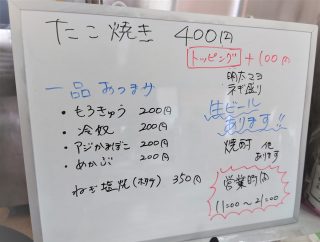 たこ焼き 400円
トッピング +100円
明太マヨ
ネギ盛り
一品 おつまみ
・もろきゅう 200円
・冷奴 200円
・アジかまぼこ 200円
・めかぶ 200円
ねぎ塩焼(ホタテ) 350円
生ビール
あります!!
焼酎 他
あります
営業時間
11:00〜21:00